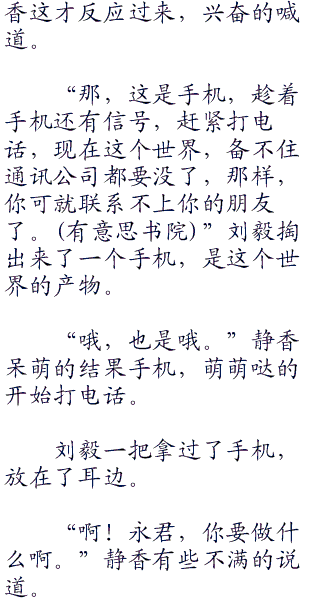 香这才反应过来，兴奋的喊
道。
“那，这是手机，趁着
手机还有信号，赶紧打电
话，现在这个世界，备不住
通讯公司都要没了，那样，
你可就联系不上你的朋友
了。(有意思书院)”刘毅掏
出来了一个手机，是这个世
界的产物。
“哦，也是哦。”静香
呆萌的结果手机，萌萌哒的
开始打电话。
刘毅一把拿过了手机，
放在了耳边。
“啊！永君，你要做什
么啊。”静香有些不满的说
道。